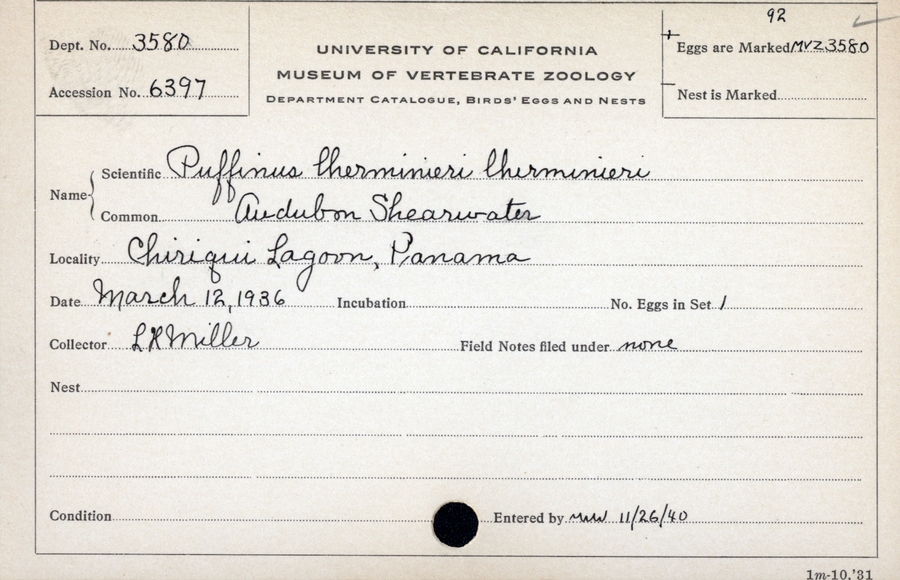 92
Dept. No. 3580
UNIVERSITY OF CALIFORNIA
Eggs are Marked MVZ3580
MUSEUM OF VERTEBRATE ZOOLOGY
Accession No. 6397
DEPARTMENT CATALOGUE, BIRDS' EGGS AND NESTS
Nest is Marked
Name { Scientific Puffinus lherminieri lherminieri
Common Audubon Shearwater
Locality Chiriqui Lagoon, Panama
Date March 12, 1936 Incubation No. Eggs in Set 1
Collector Miller Field Notes filed under none
Nest
Condition Entered by 11/26/40
1m-10,'31